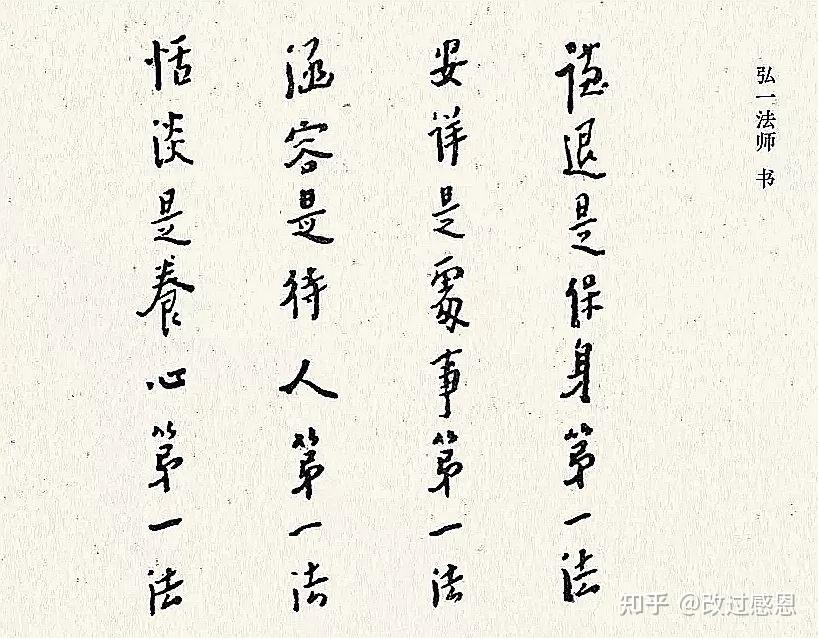 弘一法师 书
谦退是保身第一法
安详是處事第一法
涵容是待人第一法
恬淡是養心第一法
知乎 @改过感恩